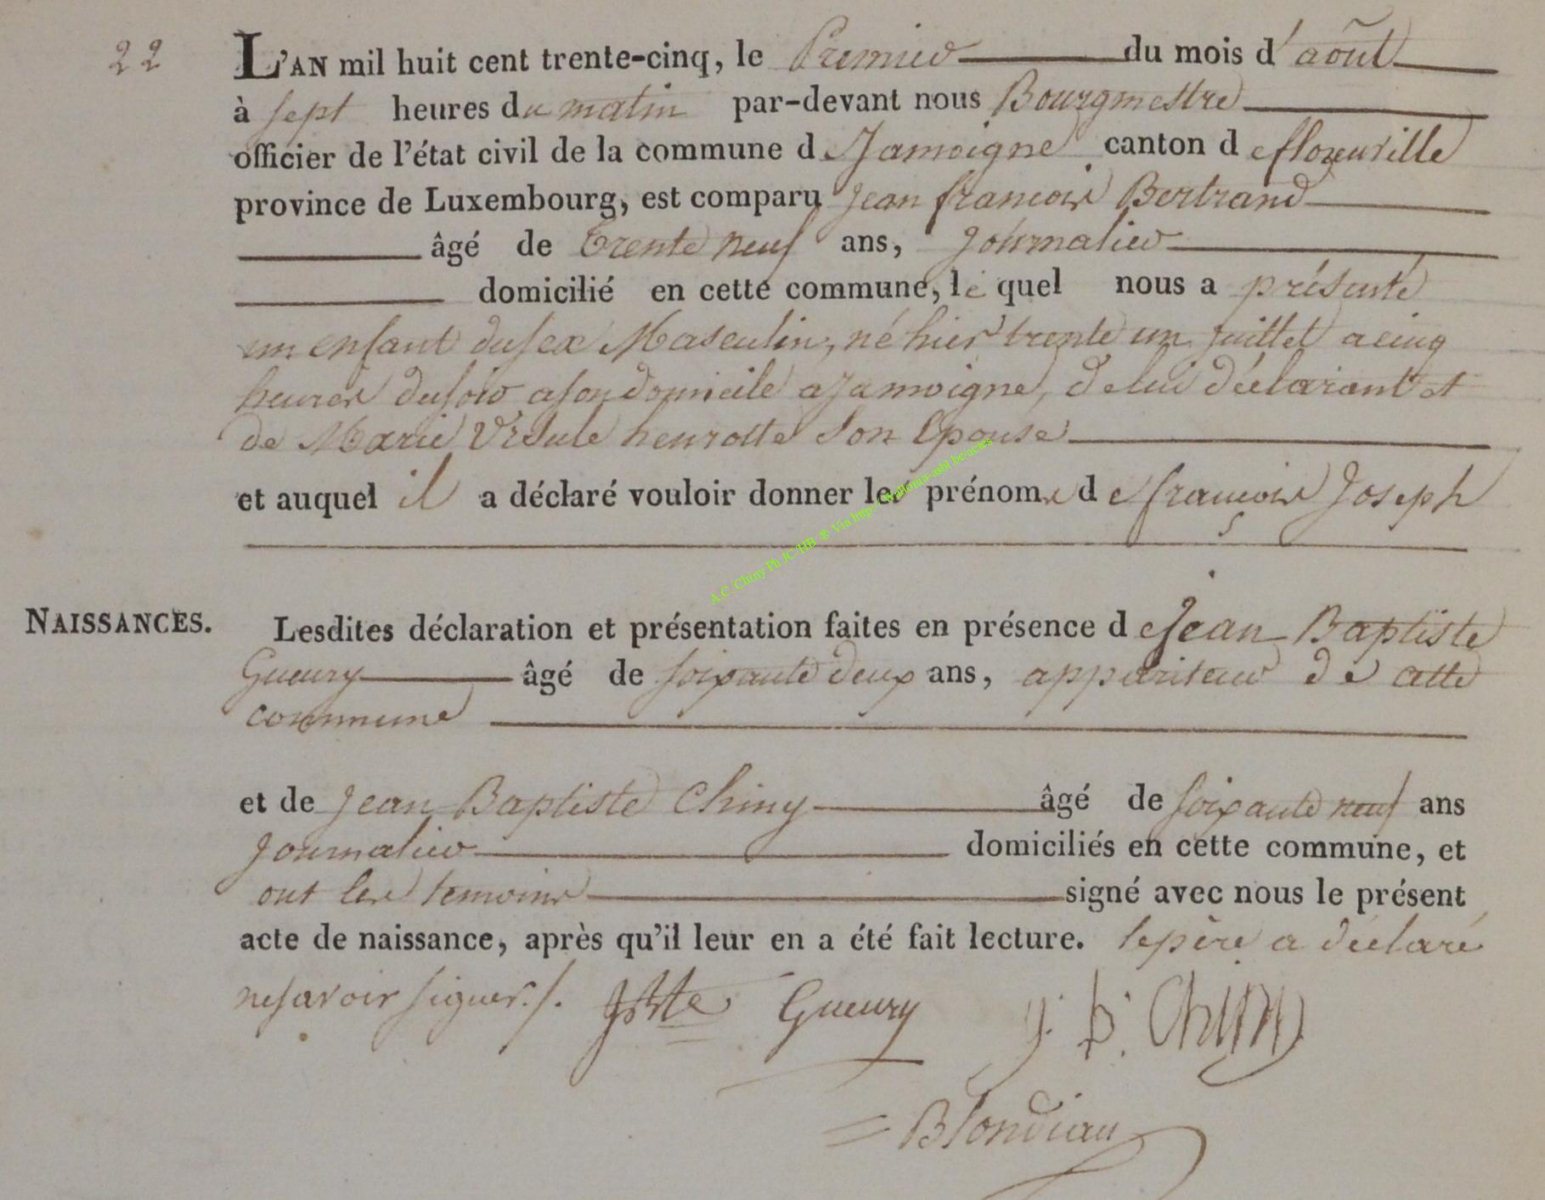 22
L'AN mil huit cent trente-cinq, le Premier du mois d'août
à sept heures du matin par-devant nous Bourgmestre
officier de l'état civil de la commune de Jamoigne canton de florenville
province de Luxembourg, est comparu Jean francois Bertrand
âgé de trente neuf ans, Journalier
domicilié en cette commune, le quel nous a présenté
un enfant du sex Masculin, né hier trente un juillet a cinq
heures du soir a son domicile a Jamoigne, de lui déclarant et
de Marie Ursule henrotte son Epouse
et auquel il a déclaré vouloir donner les prénoms de francois Joseph
NAISSANCES.
Lesdites déclaration et présentation faites en présence de Jean Baptiste
Gueury âgé de soixante deux ans, appariteur de cette
commune
et de Jean Baptiste Chiny âgé de soixante neuf ans
Journalier domiciliés en cette commune, et
ont les temoins signé avec nous le présent
acte de naissance, après qu'il leur en a été fait lecture. le père a déclaré
ne savoir signer./.
JBte Gueury J. B. Chiny
Blondiau